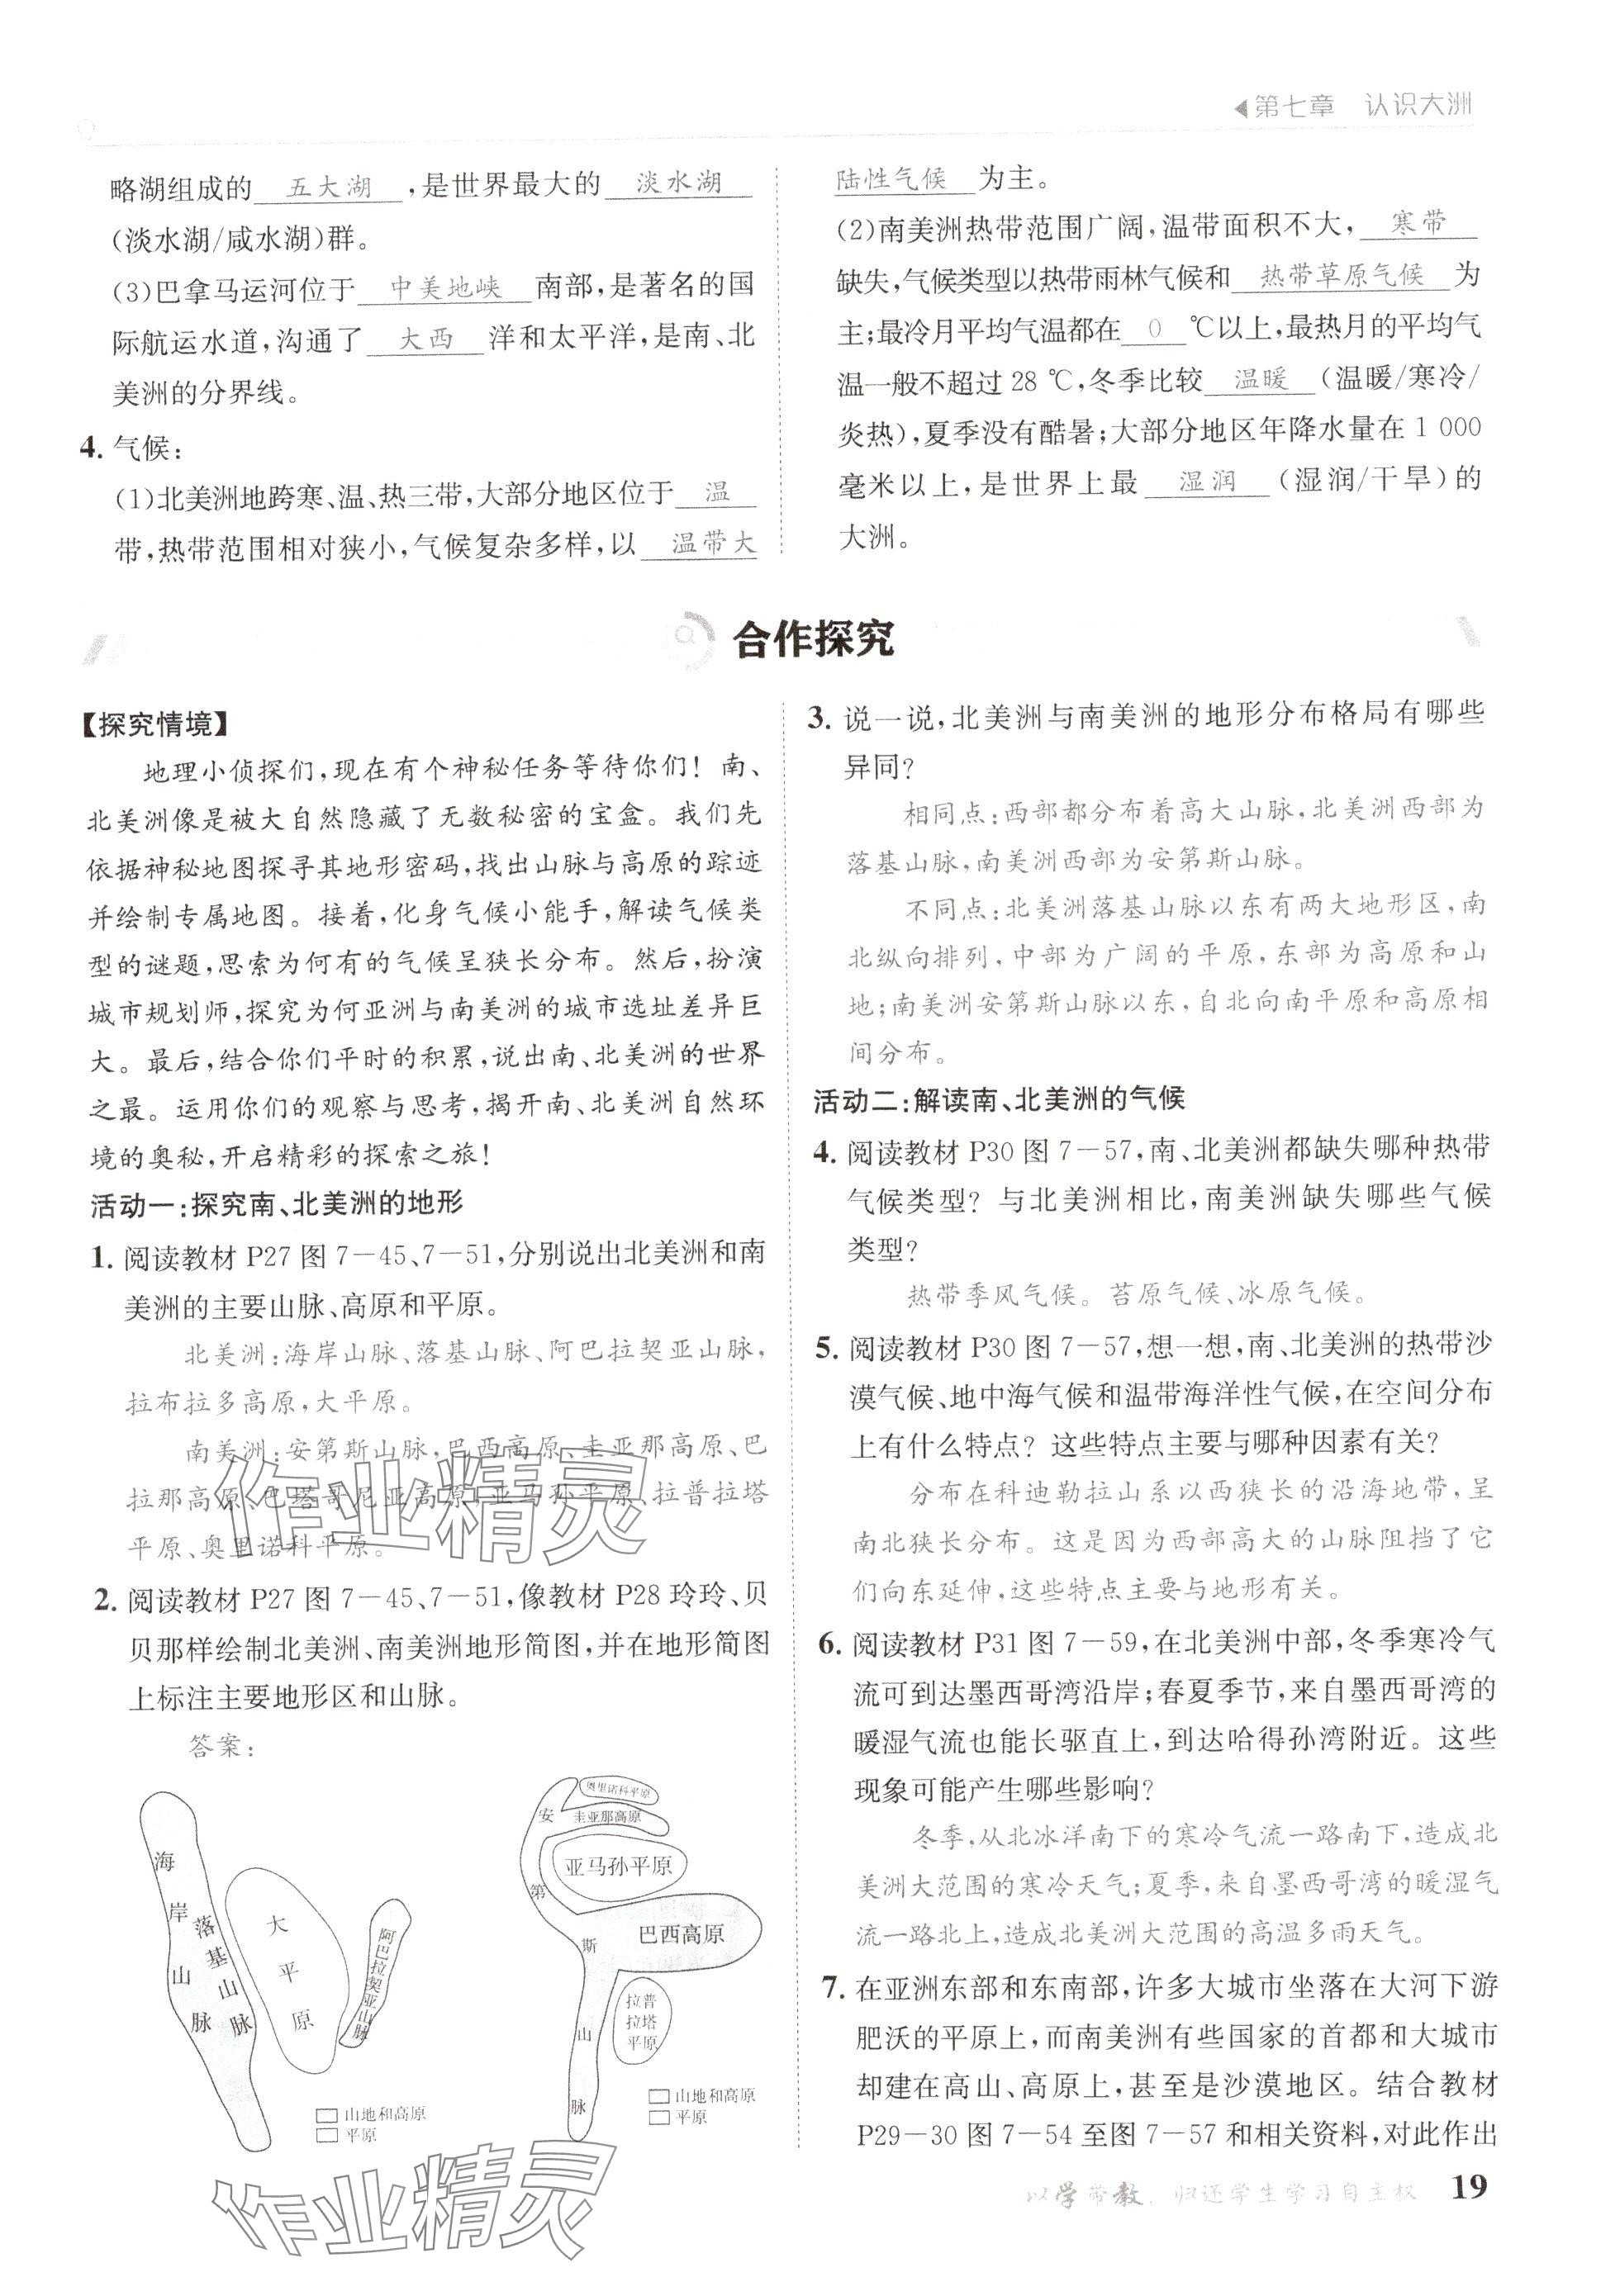 第七章 认识大洲
略湖组成的 五大湖 ,是世界最大的 淡水湖
(淡水湖/咸水湖)群。
(3)巴拿马运河位于 中美地峡 南部,是著名的国
际航运水道,沟通了 大西 洋和太平洋,是南、北
美洲的分界线。
4. 气候:
(1)北美洲地跨寒、温、热三带,大部分地区位于 温
带,热带范围相对狭小,气候复杂多样,以 温带大
陆性气候 为主。
(2)南美洲热带范围广阔,温带面积不大, 寒带
缺失,气候类型以热带雨林气候和 热带草原气候 为
主;最冷月平均气温都在 0 ℃以上,最热月的平均气
温一般不超过 28 ℃,冬季比较 温暖 (温暖/寒冷/
炎热),夏季没有酷暑;大部分地区年降水量在 1 000
毫米以上,是世界上最 湿润 (湿润/干旱)的
大洲。
合作探究
【探究情境】
地理小侦探们,现在有个神秘任务等待你们!南、
北美洲像是被大自然隐藏了无数秘密的宝盒。我们先
依据神秘地图探寻其地形密码,找出山脉与高原的踪迹
并绘制专属地图。接着,化身气候小能手,解读气候类
型的谜题,思索为何有的气候呈狭长分布。然后,扮演
城市规划师,探究为何亚洲与南美洲的城市选址差异巨
大。最后,结合你们平时的积累,说出南、北美洲的世界
之最。运用你们的观察与思考,揭开南、北美洲自然环
境的奥秘,开启精彩的探索之旅!
活动一:探究南、北美洲的地形
1. 阅读教材 P27 图 7-45、7-51,分别说出北美洲和南
美洲的主要山脉、高原和平原。
北美洲:海岸山脉、落基山脉、阿巴拉契亚山脉,
拉布拉多高原,大平原。
南美洲:安第斯山脉,巴西高原、圭亚那高原、巴
拉那高原、巴塔哥尼亚高原,亚马孙平原、拉普拉塔
平原、奥里诺科平原。
2. 阅读教材 P27 图 7-45、7-51,像教材 P28 玲玲、贝
贝那样绘制北美洲、南美洲地形简图,并在地形简图
上标注主要地形区和山脉。
答案:
海岸山脉
落基山脉
大平原
阿巴拉契亚山脉
山地和高原
平原
奥里诺科平原
圭亚那高原
安第斯山脉
亚马孙平原
巴西高原
拉普
拉塔
平原
山地和高原
平原
3. 说一说,北美洲与南美洲的地形分布格局有哪些
异同?
相同点:西部都分布着高大山脉,北美洲西部为
落基山脉,南美洲西部为安第斯山脉。
不同点:北美洲落基山脉以东有两大地形区,南
北纵向排列,中部为广阔的平原,东部为高原和山
地;南美洲安第斯山脉以东,自北向南平原和高原相
间分布。
活动二:解读南、北美洲的气候
4. 阅读教材 P30 图 7-57,南、北美洲都缺失哪种热带
气候类型?与北美洲相比,南美洲缺失哪些气候
类型?
热带季风气候。苔原气候、冰原气候。
5. 阅读教材 P30 图 7-57,想一想,南、北美洲的热带沙
漠气候、地中海气候和温带海洋性气候,在空间分布
上有什么特点?这些特点主要与哪种因素有关?
分布在科迪勒拉山系以西狭长的沿海地带,呈
南北狭长分布。这是因为西部高大的山脉阻挡了它
们向东延伸,这些特点主要与地形有关。
6. 阅读教材 P31 图 7-59,在北美洲中部,冬季寒冷气
流可到达墨西哥湾沿岸;春夏季节,来自墨西哥湾的
暖湿气流也能长驱直上,到达哈得孙湾附近。这些
现象可能产生哪些影响?
冬季,从北冰洋南下的寒冷气流一路南下,造成北
美洲大范围的寒冷天气;夏季,来自墨西哥湾的暖湿气
流一路北上,造成北美洲大范围的高温多雨天气。
7. 在亚洲东部和东南部,许多大城市坐落在大河下游
肥沃的平原上,而南美洲有些国家的首都和大城市
却建在高山、高原上,甚至是沙漠地区。结合教材
P29-30 图 7-54 至图 7-57 和相关资料,对此作出
以学带教,归还学生学习自主权 19
作业精灵
作业精灵